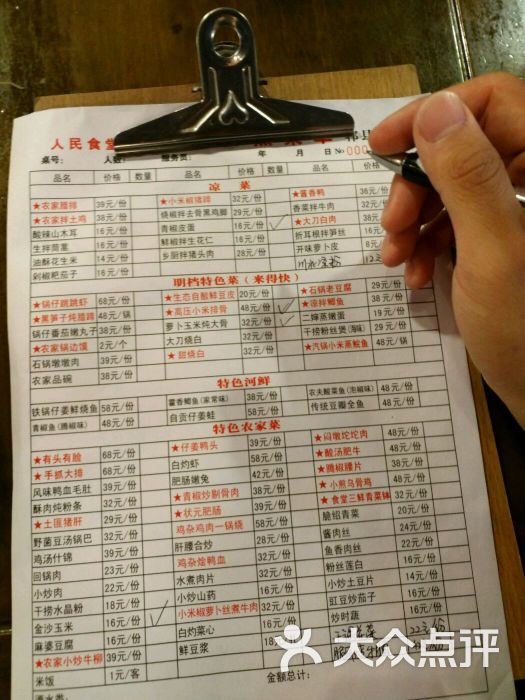 人民食堂
桌号： 人数： 服务员： 年 月 日 No 000
品名 价格 数量 品名 价格 数量 品名 价格
凉 菜
★农家腊排 39元/份 ★小米椒猪蹄 32元/份 ★酱香鸭 36元/份
★农家拌土鸡 38元/份 烧椒拌去骨黑鸡脚 29元/份 香菜拌牛肉 32元/份
酸辣山木耳 16元/份 青椒皮蛋 16元/份 ★大刀白肉
生拌茼蒿 16元/份 鲜椒拌生花仁 16元/份 折耳根拌笋丝 16元/份
油酥花生米 14元/份 乡厨拌猪头肉 28元/份 开味萝卜皮 8元/份
剁椒粑茄子 16元/份
明档特色菜（来得快）
★锅仔跳跳虾 68元/份 ★生态自酿鲜豆皮 20元/份 ★石锅老豆腐 29元/份
★黑笋子炖腊蹄 48元/锅 ★高压小米排骨 48元/份 ★凉拌鲫鱼 38元/份
锅仔番茄嫩丸子 38元/锅 萝卜玉米炖大骨 32元/份 二婶蒸嫩蛋 19元/份
★农家锅边馍 2元/个 大刀烧白 32元/份 干捞粉丝煲（海味） 29元/份
石锅墩墩肉 39元/份 ★甜烧白 32元/份 ★汽锅小米蒸鮻鱼 48元/锅
农家品碗 38元/份
特色河鲜
铁锅仔姜鲜烧鱼 58元/份 藿香鲫鱼（家常味） 38元/份 农夫酸菜鱼（泡椒味） 48元/份
青椒鱼（腾椒味） 48元/份 自贡仔姜蛙 58元/份 传统豆瓣全鱼 48元/份
特色农家菜
★有头有脸 68元/份 ★仔姜鸭头 39元/份 ★闷墩坨坨肉 48元/份
★手抓大排 68元/份 白灼虾 58元/份 ★酸汤肥牛 48元/份
风味鸭血毛肚 39元/份 肥肠嫩兔 42元/份 ★腾椒腰片 38元/份
酥肉炖粉条 32元/份 ★青椒炒剔骨肉 38元/份 ★小煎乌骨鸡 48元/份
★土匪猪肝 29元/份 ★状元肥肠 39元/份 ★食堂三鲜青菜钵 32元/份
野菌豆汤锅巴 32元/份 鸡杂鸡肉一锅烧 58元/份 脆铝青菜 20元/份
鸡汤什锦 39元/份 肝腰合炒 32元/份 酱肉丝 24元/份
回锅肉 23元/份 鸡杂烩鸭血 32元/份 鱼香肉丝 22元/份
小炒肉 22元/份 水煮肉片 32元/份 粉丝莲白 16元/份
干捞水晶粉 18元/份 小炒山药 18元/份 小炒土豆片 14元/份
金沙玉米 16元/份 ★小米椒萝卜丝煮牛肉 32元/份 豇豆炒茄子 16元/份
麻婆豆腐 18元/份 白灼菜心 16元/份 炒时蔬
★农家小炒牛柳 39元/份 鲜豆浆 18元
米饭 1元/客
金额总计：
大众点评